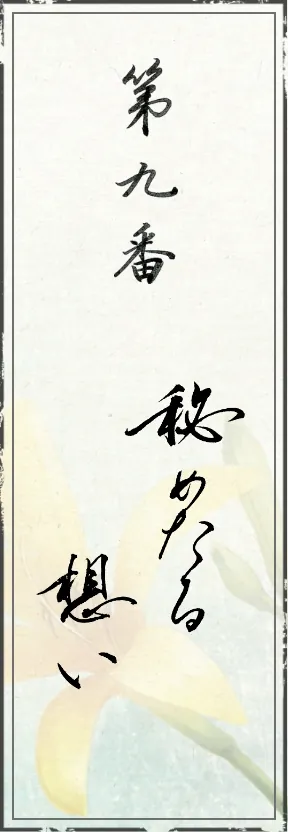 第九番
秘めたる
想い